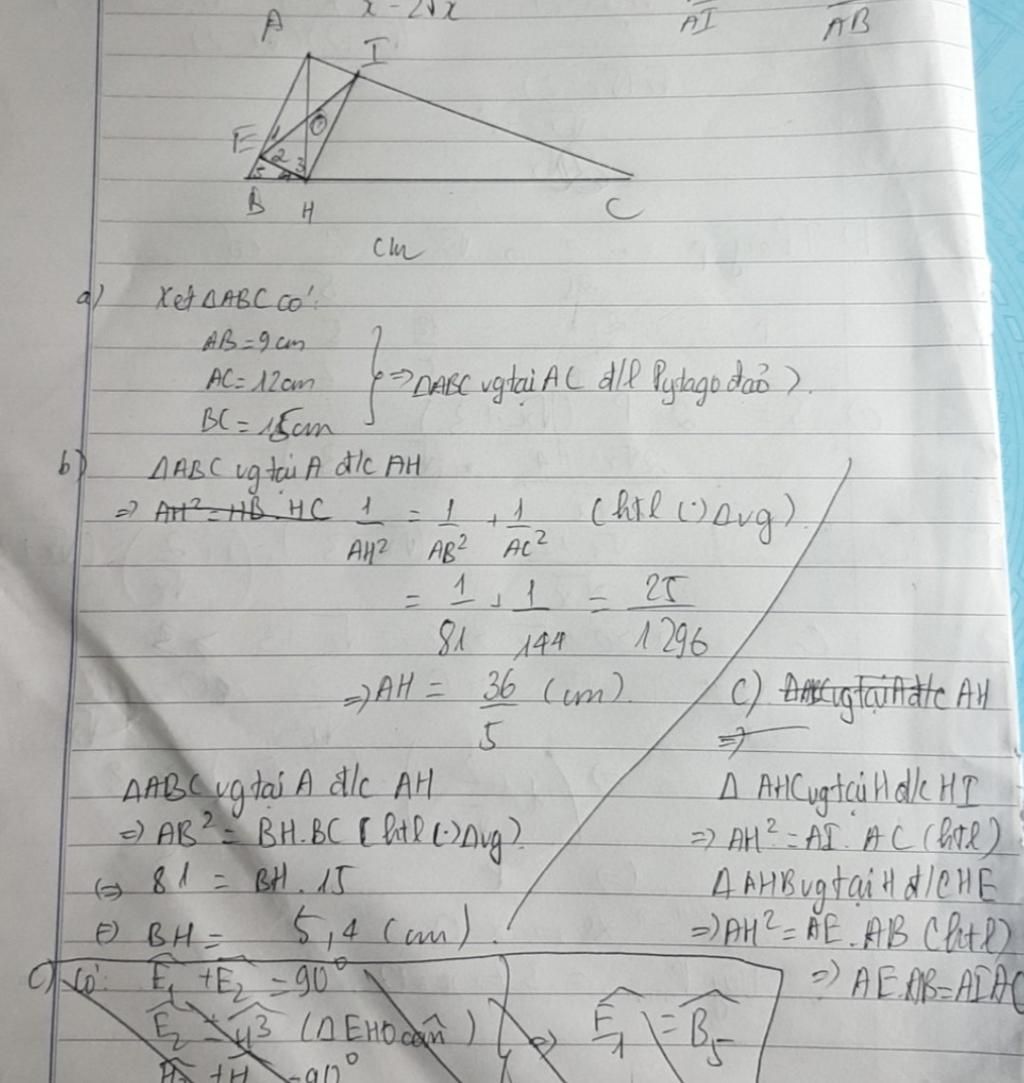 x - 2√x
AI AB
A
I
E
1
O
2 3
5 4
B H C
cm
a) Xét ΔABC có:
AB = 9cm
AC = 12cm
BC = 15cm
=> ΔABC vg tại A C đ/l Pytago đảo ).
b) ΔABC vg tại A đ/c AH
=> AH² = HB.HC 1/AH² = 1/AB² + 1/AC² (htl (·) Δvg)
= 1/81 + 1/144 = 25/1296
=> AH = 36/5 (cm).
ΔABC vg tại A đ/c AH
=> AB² = BH.BC (htl (·) Δvg)
(=> 81 = BH.15
(=) BH = 5,4 (cm).
C) ΔABC vg tại A đ/c AH
=>
Δ AHC vg tại H đ/c HI
=> AH² = AI. AC (htl)
Δ AHB vg tại H đ/c HE
=> AH² = AE. AB (htl)
=> AE.AB = AI AC
c) Có: E₁ + E₂ = 90°
E₂ = H3 (ΔEHO cân)
=> E₁ = B₅
+ H = 90°